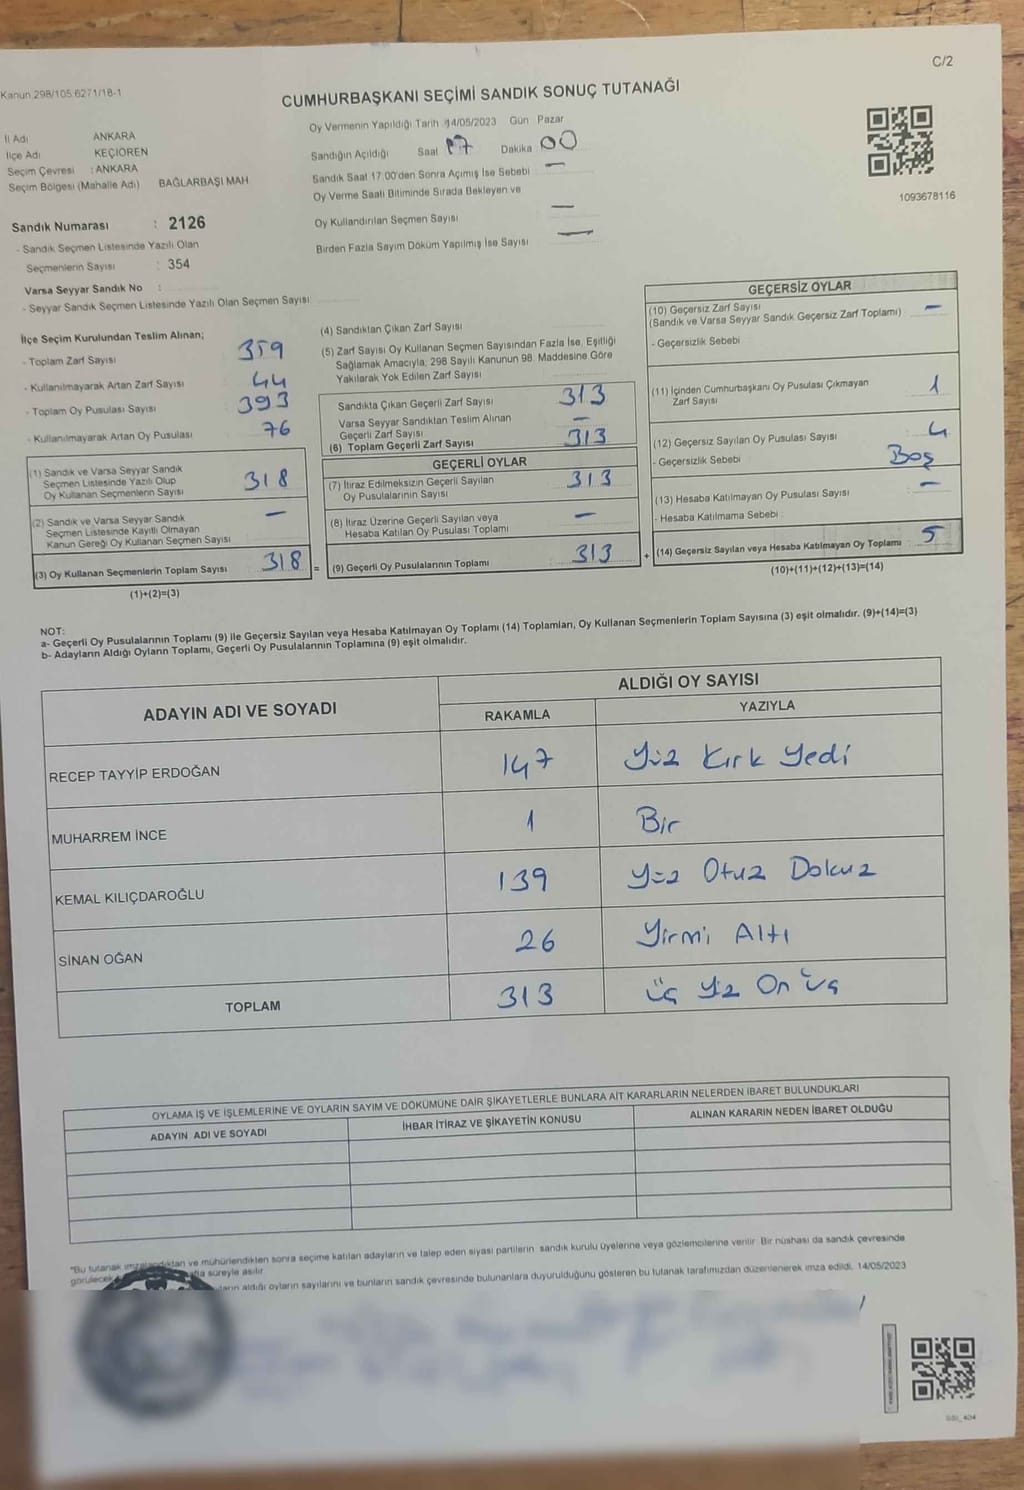 C/2
Kanun 298/105 6271/18-1
CUMHURBAŞKANI SEÇİMİ SANDIK SONUÇ TUTANAĞI
İl Adı ANKARA
İlçe Adı KEÇİÖREN
Seçim Çevresi : ANKARA
Seçim Bölgesi (Mahalle Adı) BAĞLARBAŞI MAH
Oy Vermenin Yapıldığı Tarih 14/05/2023 Gün Pazar
Sandığın Açıldığı Saat 17 Dakika 00
Sandık Saat 17:00'den Sonra Açımış İse Sebebi —
Oy Verme Saati Bitiminde Sırada Bekleyen ve
Oy Kullandırılan Seçmen Sayısı —
Birden Fazla Sayım Döküm Yapılmış İse Sayısı —
1093678116
Sandık Numarası : 2126
- Sandık Seçmen Listesinde Yazılı Olan
Seçmenlerin Sayısı : 354
Varsa Seyyar Sandık No :
- Seyyar Sandık Seçmen Listesinde Yazılı Olan Seçmen Sayısı:
İlçe Seçim Kurulundan Teslim Alınan;
- Toplam Zarf Sayısı 359
- Kullanılmayarak Artan Zarf Sayısı 44
- Toplam Oy Pusulası Sayısı 393
- Kullanılmayarak Artan Oy Pusulası 76
(1) Sandık ve Varsa Seyyar Sandık
Seçmen Listesinde Yazılı Olup
Oy Kullanan Seçmenlerin Sayısı 318
(2) Sandık ve Varsa Seyyar Sandık
Seçmen Listesinde Kayıtlı Olmayan
Kanun Gereği Oy Kullanan Seçmen Sayısı —
(3) Oy Kullanan Seçmenlerin Toplam Sayısı 318 =
(1)+(2)=(3)
(4) Sandıktan Çıkan Zarf Sayısı
(5) Zarf Sayısı Oy Kullanan Seçmen Sayısından Fazla İse, Eşitliği
Sağlamak Amacıyla, 298 Sayılı Kanunun 98. Maddesine Göre
Yakılarak Yok Edilen Zarf Sayısı
Sandıkta Çıkan Geçerli Zarf Sayısı 313
Varsa Seyyar Sandıktan Teslim Alınan
Geçerli Zarf Sayısı —
(6) Toplam Geçerli Zarf Sayısı 313
GEÇERLİ OYLAR
(7) İtiraz Edilmeksizin Geçerli Sayılan
Oy Pusulalarının Sayısı 313
(8) İtiraz Üzerine Geçerli Sayılan veya
Hesaba Katılan Oy Pusulası Toplamı —
(9) Geçerli Oy Pusulalarının Toplamı 313 +
GEÇERSİZ OYLAR
(10) Geçersiz Zarf Sayısı
(Sandık ve Varsa Seyyar Sandık Geçersiz Zarf Toplamı) : —
- Geçersizlik Sebebi
(11) İçinden Cumhurbaşkanı Oy Pusulası Çıkmayan
Zarf Sayısı 1
(12) Geçersiz Sayılan Oy Pusulası Sayısı 4
- Geçersizlik Sebebi Boş
(13) Hesaba Katılmayan Oy Pusulası Sayısı —
- Hesaba Katılmama Sebebi :
(14) Geçersiz Sayılan veya Hesaba Katılmayan Oy Toplamı : 5
(10)+(11)+(12)+(13)=(14)
NOT:
a- Geçerli Oy Pusulalarının Toplamı (9) ile Geçersiz Sayılan veya Hesaba Katılmayan Oy Toplamı (14) Toplamları, Oy Kullanan Seçmenlerin Toplam Sayısına (3) eşit olmalıdır. (9)+(14)=(3)
b- Adayların Aldığı Oyların Toplamı, Geçerli Oy Pusulalarının Toplamına (9) eşit olmalıdır.
ADAYIN ADI VE SOYADI ALDIĞI OY SAYISI
RAKAMLA YAZIYLA
RECEP TAYYİP ERDOĞAN 147 Yüz Kırk Yedi
MUHARREM İNCE 1 Bir
KEMAL KILIÇDAROĞLU 139 Yüz Otuz Dokuz
SİNAN OĞAN 26 Yirmi Altı
TOPLAM 313 Üç Yüz On Üç
OYLAMA İŞ VE İŞLEMLERİNE VE OYLARIN SAYIM VE DÖKÜMÜNE DAİR ŞİKAYETLERLE BUNLARA AİT KARARLARIN NELERDEN İBARET BULUNDUKLARI
ADAYIN ADI VE SOYADI İHBAR İTİRAZ VE ŞİKAYETİN KONUSU ALINAN KARARIN NEDEN İBARET OLDUĞU
"Bu tutanak imzalandıktan ve mühürlendikten sonra seçime katılan adayların ve talep eden siyasi partilerin sandık kurulu üyelerine veya gözlemcilerine verilir. Bir nüshası da sandık çevresinde
görülecek süreyle asılır.
aldığı oyların sayılarını ve bunların sandık çevresinde bulunanlara duyurulduğunu gösteren bu tutanak tarafımızdan düzenlenerek imza edildi. 14/05/2023